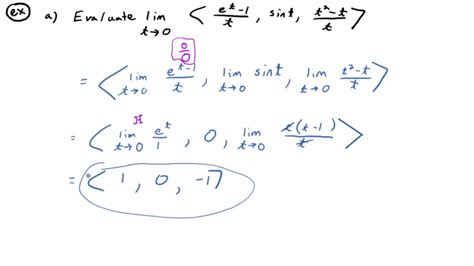 ex a) Evaluate lim t→0 < (e^t-1)/t , sint , (t²-t)/t >
0/0
= < lim t→0 (e^t-1)/t , lim t→0 sint , lim t→0 (t²-t)/t >
H
= < lim t→0 e^t/1 , 0 , lim t→0 t(t-1)/t >
= < 1 , 0 , -1 >